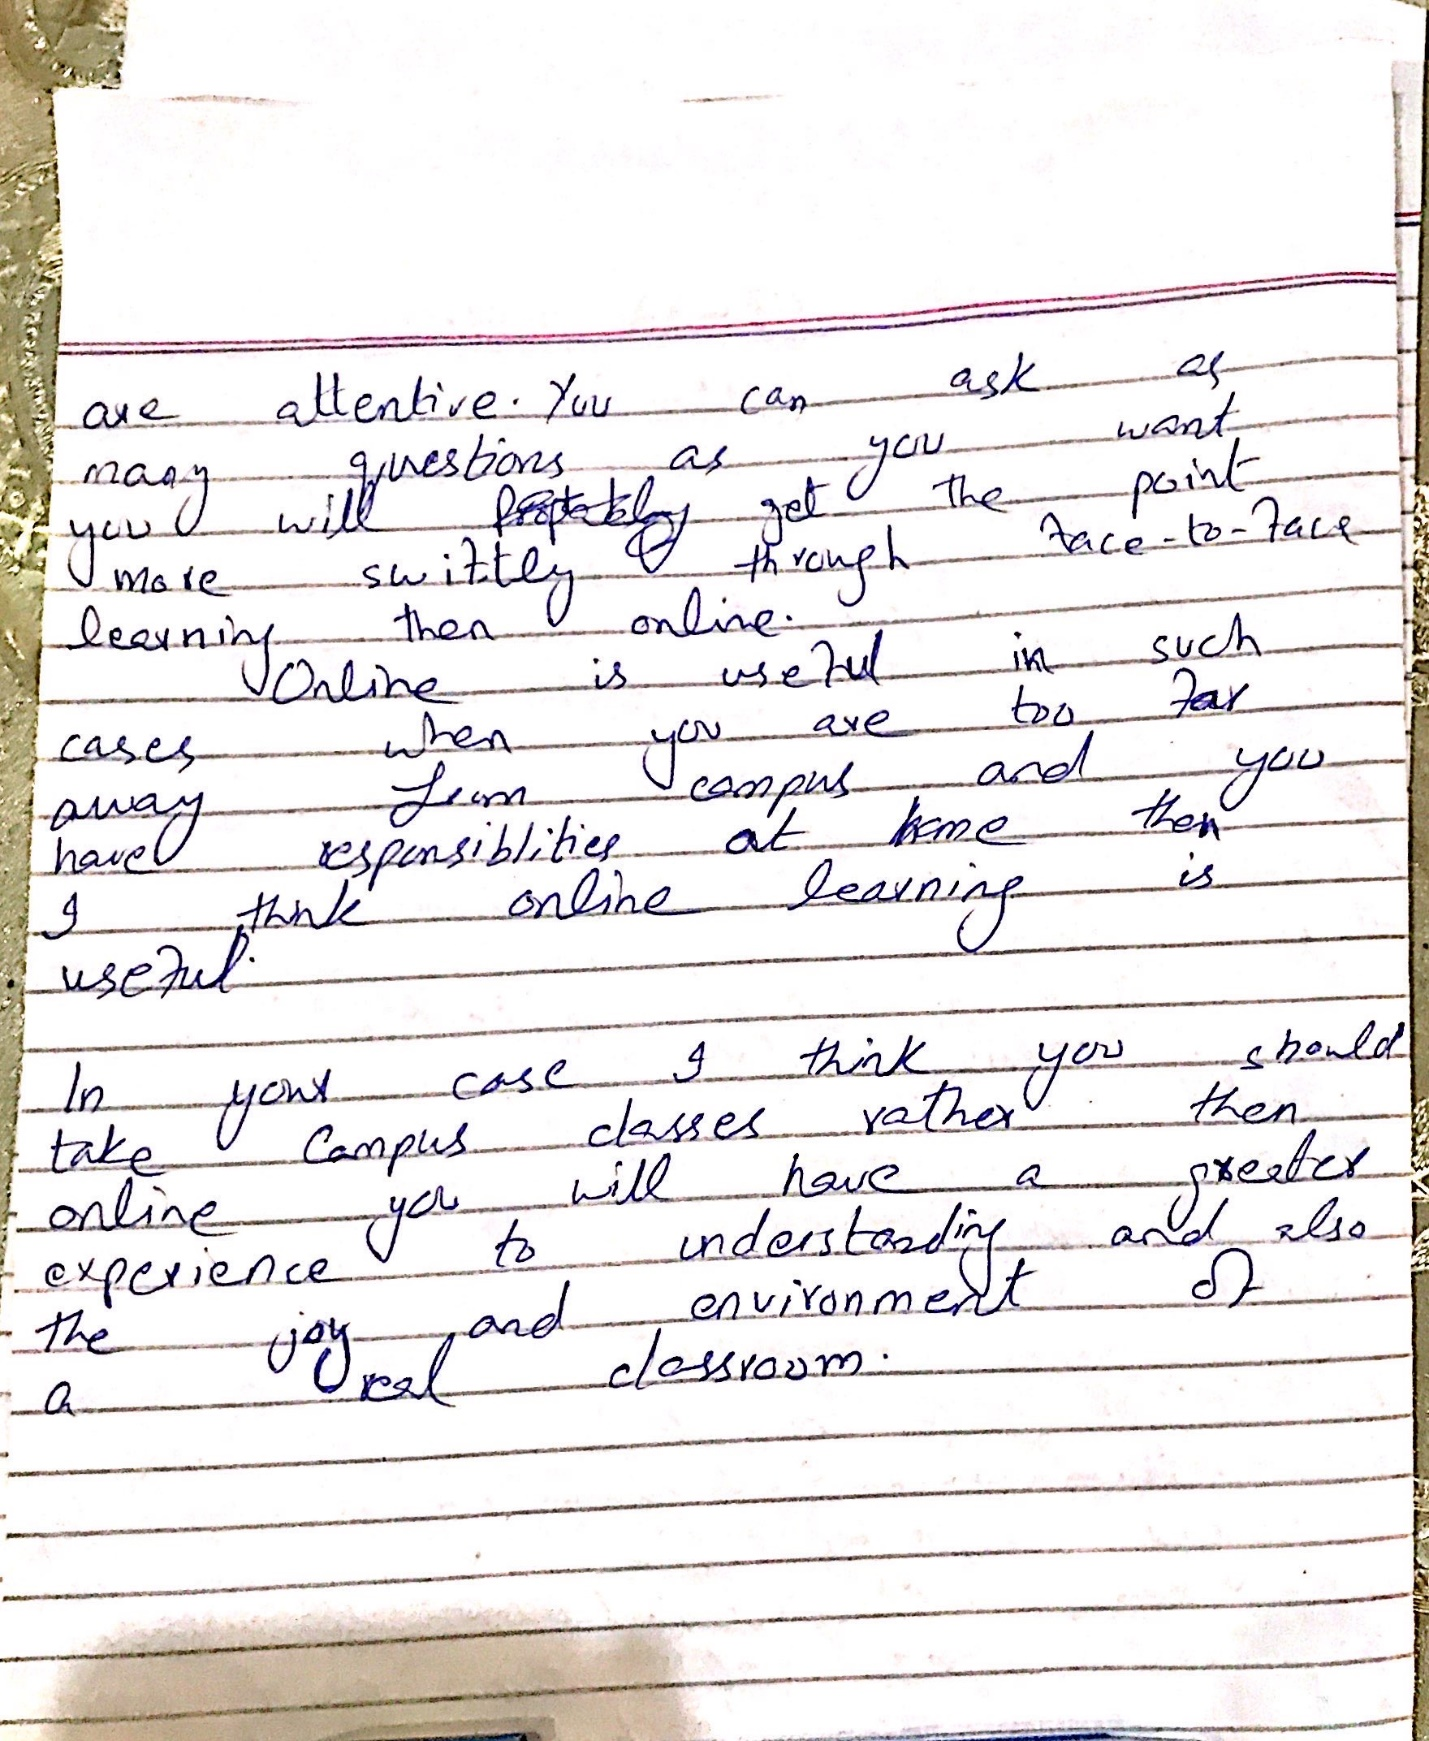 are attentive. You can ask as
many questions as you want
you will get the point
more swiftly through face-to-face
learning then online.
Online is useful in such
cases when you are too far
away from campus and you
have responsiblities at home then
I think online learning is
useful.
In your case I think you should
take Campus classes rather then
online you will have a greater
experience to understanding and also
the joy and environment of
a real classroom.